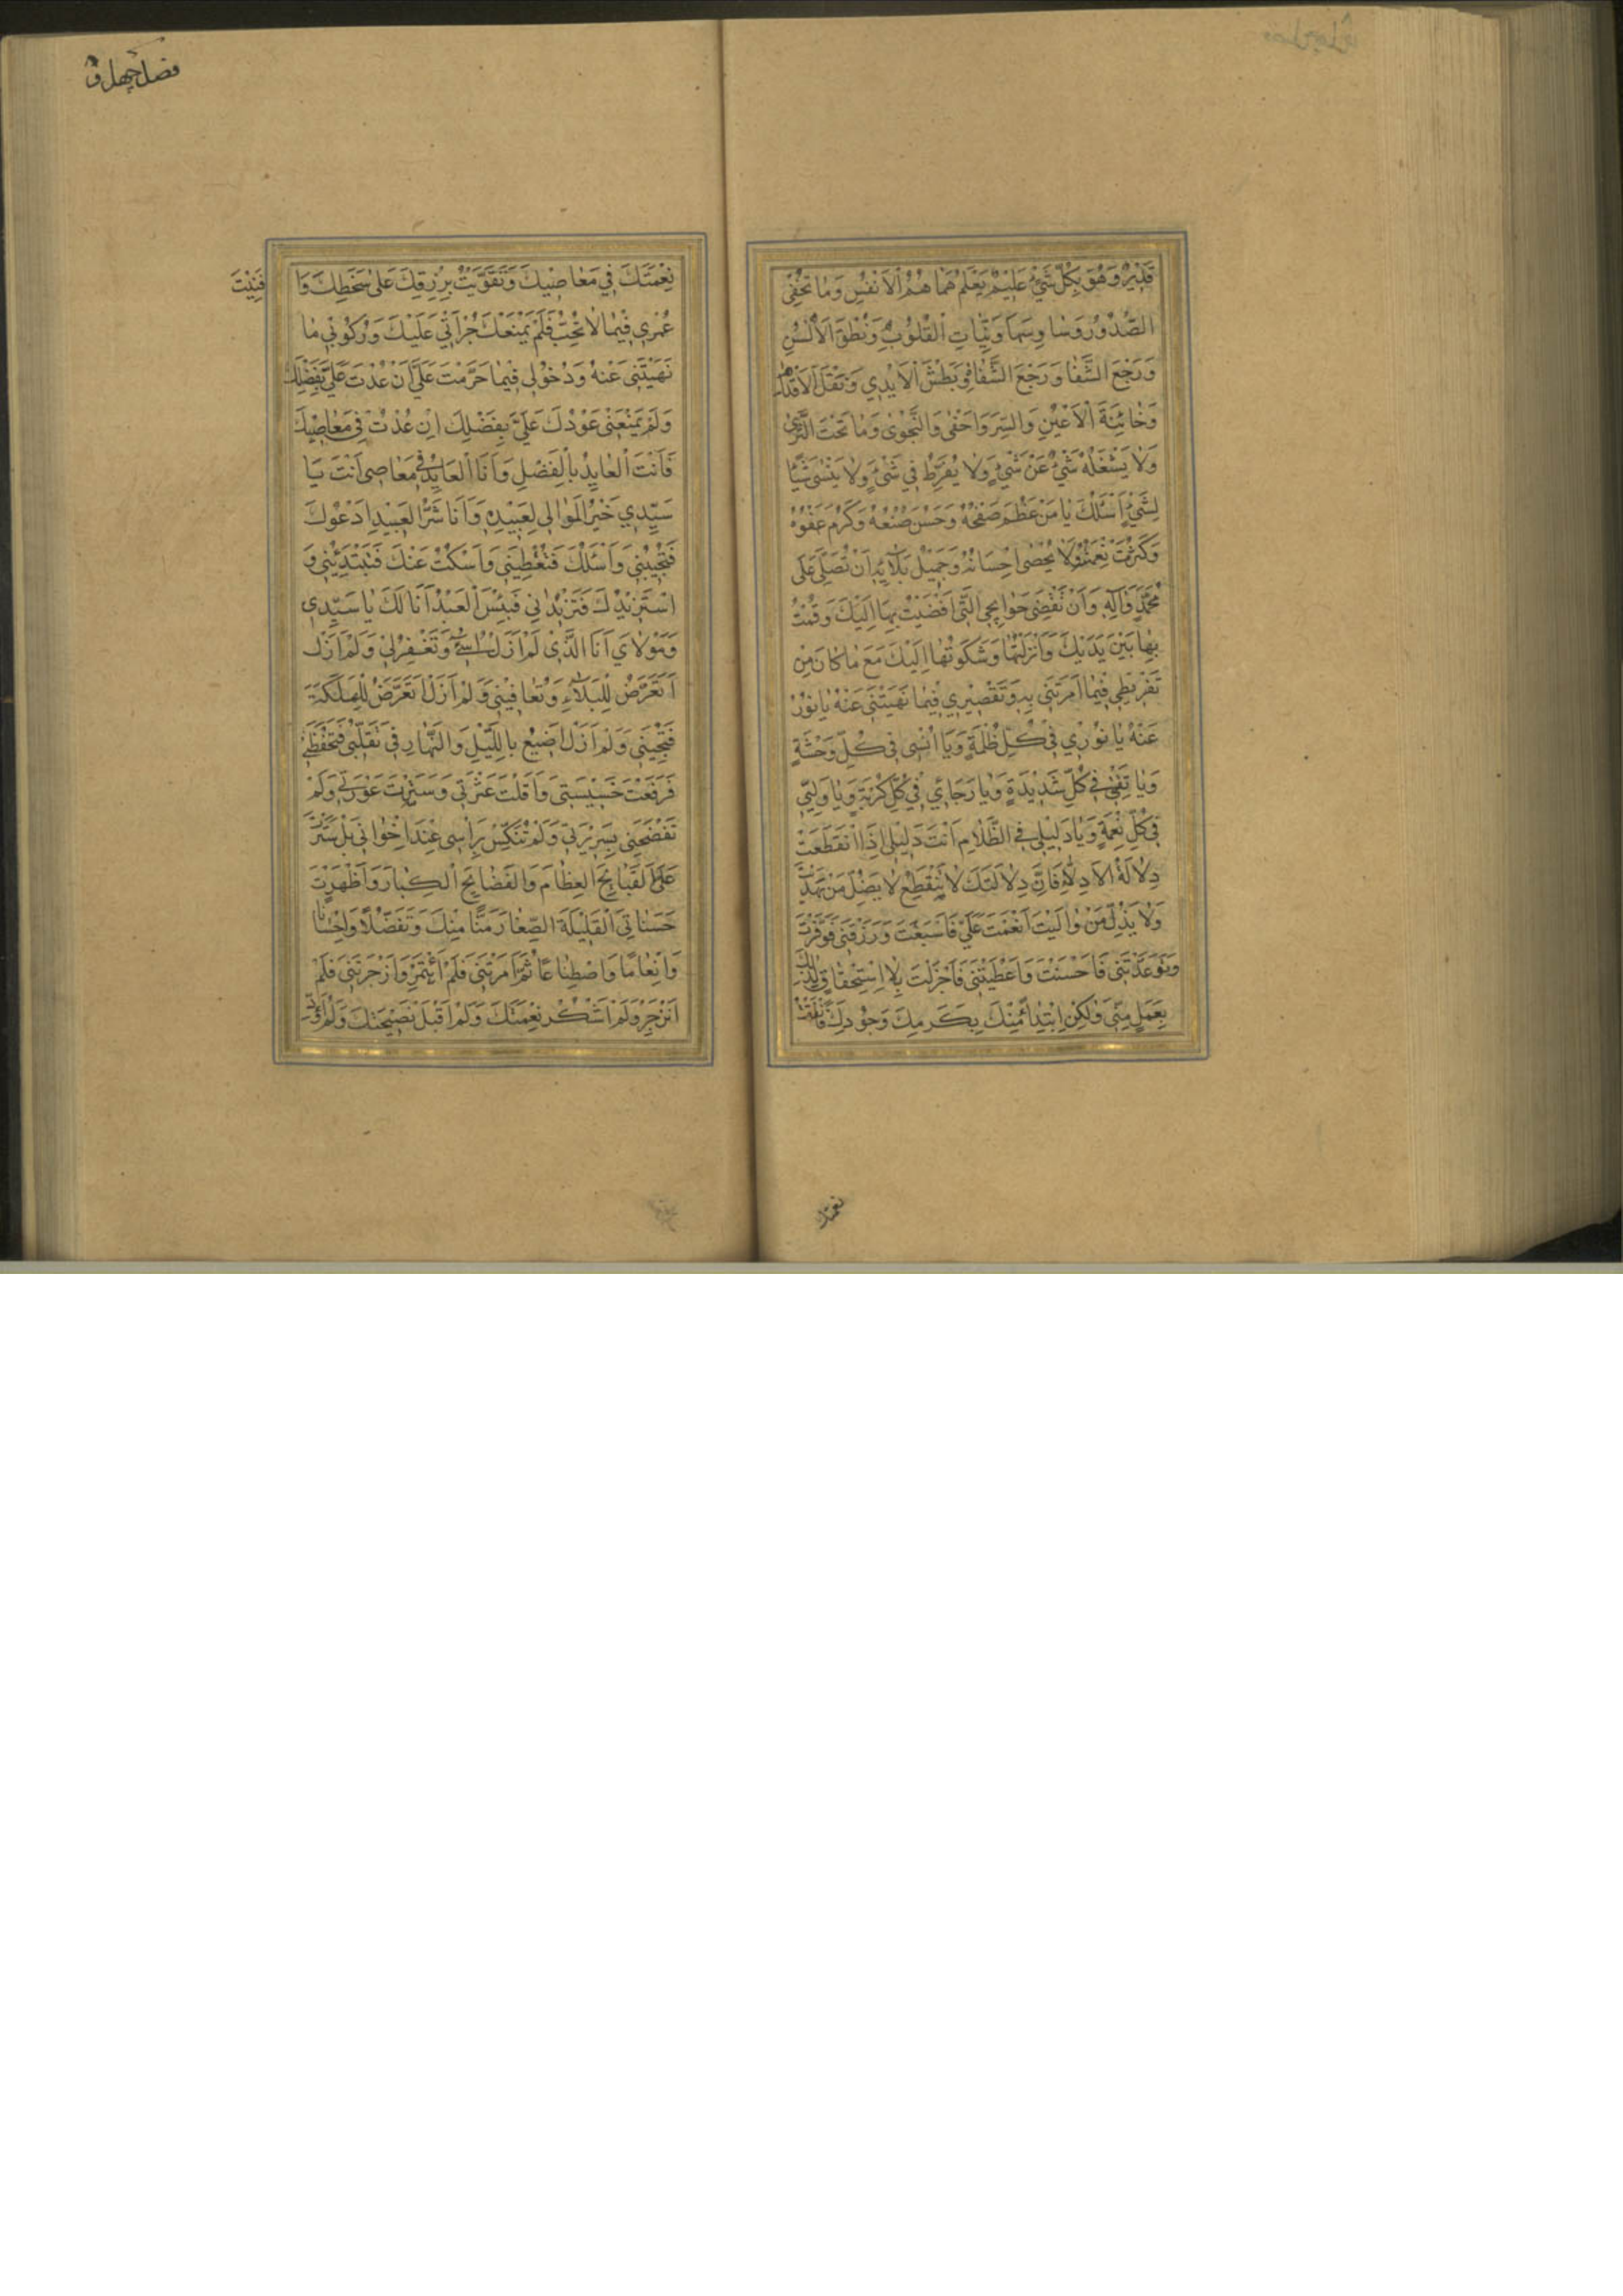 قَدِيرٌ وَهُوَ بِكُلِّ شَيْءٍ عَلِيمٌ يَعْلَمُ هَمَاهُمُ الْاَنْفُسِ وَمَا تُخْفِي
الصُّدُورُ وَسَاوِسَهَا وَنِيَّاتِ الْقُلُوبِ وَنُطْقَ الْاَلْسُنِ
وَرَجْعَ الشِّفَا وَرَجْعَ الشِّفَاهِ وَبَطْشَ الْاَيْدِي وَنَقْلَ الْاَقْدَامِ
وَخَائِنَةَ الْاَعْيُنِ وَالسِّرَّ وَاَخْفَى وَالنَّجْوَى وَمَا تَحْتَ الثَّرَى
وَلَا يَشْغَلُهُ شَيْءٌ عَنْ شَيْءٍ وَلَا يُفَرِّطُ فِي شَيْءٍ وَلَا يَنْسَى شَيْئًا
لِشَيْءٍ اَسْئَلُكَ يَا مَنْ عَظُمَ صَفْحُهُ وَحَسُنَ صُنْعُهُ وَكَرُمَ عَفْوُهُ
وَكَثُرَتْ نِعْمَتُهُ وَلَا يُحْصَى اِحْسَانُهُ وَجَمِيلُ بَلَائِهِ اَنْ تُصَلِّيَ عَلَى
مُحَمَّدٍ وَآلِهِ وَاَنْ تَقْضِيَ حَوَايِجِي الَّتِي اَفْضَيْتُ بِهَا اِلَيْكَ وَقُمْتُ
بِهَا بَيْنَ يَدَيْكَ وَاَنْزَلْتُهَا وَشَكَوْتُهَا اِلَيْكَ مَعَ مَا كَانَ مِنْ
تَفْرِيطِي فِيمَا اَمَرْتَنِي بِهِ وَتَقْصِيرِي فِيمَا نَهَيْتَنِي عَنْهُ يَا نُورُ
عَنْهُ يَا نُورِي فِي كُلِّ ظُلْمَةٍ وَيَا اُنْسِي فِي كُلِّ وَحْشَةٍ
وَيَا ثِقَتِي فِي كُلِّ شَدِيدَةٍ وَيَا رَجَائِي فِي كُلِّ كُرْبَةٍ وَيَا وَلِيِّي
فِي كُلِّ نِعْمَةٍ وَيَا دَلِيلِي فِي الظَّلَامِ اَنْتَ دَلِيلِي اِذَا انْقَطَعَتْ
دِلَالَةُ الْاَدِلَّاءِ فَاِنَّ دِلَالَتَكَ لَا تَنْقَطِعُ لَا يَضِلُّ مَنْ هَدَيْتَ
وَلَا يَذِلُّ مَنْ وَالَيْتَ اَنْعَمْتَ عَلَيَّ فَاَسْبَغْتَ وَرَزَقْتَنِي فَوَفَّرْتَ
وَوَعَدْتَنِي فَاَحْسَنْتَ وَاَعْطَيْتَنِي فَاَجْزَلْتَ بِلَا اِسْتِحْقَاقٍ لِذَلِكَ
بِعَمَلٍ مِنِّي وَلَكِنْ اِبْتِدَاءً مِنْكَ بِكَرَمِكَ وَجُودِكَ فَاَنْفَقْتُ
نعمتك
فصل چهل و
نِعْمَتَكَ فِي مَعَاصِيكَ وَتَقَوَّيْتُ بِرِزْقِكَ عَلَى سَخَطِكَ وَا
فَنَيْتُ
عُمْرِي فِيمَا لَا تُحِبُّ فَلَمْ يَمْنَعْكَ جُرْاَتِي عَلَيْكَ وَرُكُوبِي مَا
نَهَيْتَنِي عَنْهُ وَدُخُولِي فِيمَا حَرَّمْتَ عَلَيَّ اَنْ عُدْتَ عَلَيَّ بِفَضْلِكَ
وَلَمْ يَمْنَعْنِي عَوْدُكَ عَلَيَّ بِفَضْلِكَ اِنْ عُدْتُ فِي مَعَاصِيكَ
فَاَنْتَ الْعَايِدُ بِالْفَضْلِ وَاَنَا الْعَايِدُ فِي مَعَاصِي اَنْتَ يَا
سَيِّدِي خَيْرُ الْمَوَالِي لِعَبِيدِهِ وَاَنَا شَرُّ الْعَبِيدِ اَدْعُوكَ
فَتُجِيبُنِي وَاَسْئَلُكَ فَتُعْطِينِي وَاَسْكُتُ عَنْكَ فَتَبْتَدِئُنِي وَ
اَسْتَزِيدُكَ فَتَزِيدُنِي فَبِئْسَ الْعَبْدُ اَنَا لَكَ يَا سَيِّدِي
وَمَوْلَايَ اَنَا الَّذِي لَمْ اَزَلْ اُسِيءُ وَتَغْفِرُ لِي وَلَمْ اَزَلْ
اَتَعَرَّضُ لِلْبَلَاءِ وَتُعَافِينِي وَلَمْ اَزَلْ اَتَعَرَّضُ لِلْهَلَكَةِ
فَتُنْجِينِي وَلَمْ اَزَلْ اُضِيعُ بِاللَّيْلِ وَالنَّهَارِ فِي تَقَلُّبِي فَتَحْفَظُنِي
فَرَفَعْتَ خَسِيسَتِي وَاَقَلْتَ عَثْرَتِي وَسَتَرْتَ عَوْرَتِي وَلَمْ
تَفْضَحْنِي بِسَرِيرَتِي وَلَمْ تُنَكِّسْ بِرَاْسِي عِنْدَ اِخْوَانِي بَلْ سَتَرْتَ
عَلَيَّ الْقَبَايِحَ الْعِظَامَ وَالْفَضَايِحَ الْكِبَارَ وَاَظْهَرْتَ
حَسَنَاتِيَ الْقَلِيلَةَ الصِّغَارَ مَنًّا مِنْكَ وَتَفَضُّلًا وَاِحْسَانًا
وَاِنْعَامًا وَاصْطِنَاعًا ثُمَّ اَمَرْتَنِي فَلَمْ اَئْتَمِرْ وَزَجَرْتَنِي فَلَمْ
اَنْزَجِرْ وَلَمْ اَشْكُرْ نِعْمَتَكَ وَلَمْ اَقْبَلْ نَصِيحَتَكَ وَلَمْ اُؤَدِّ